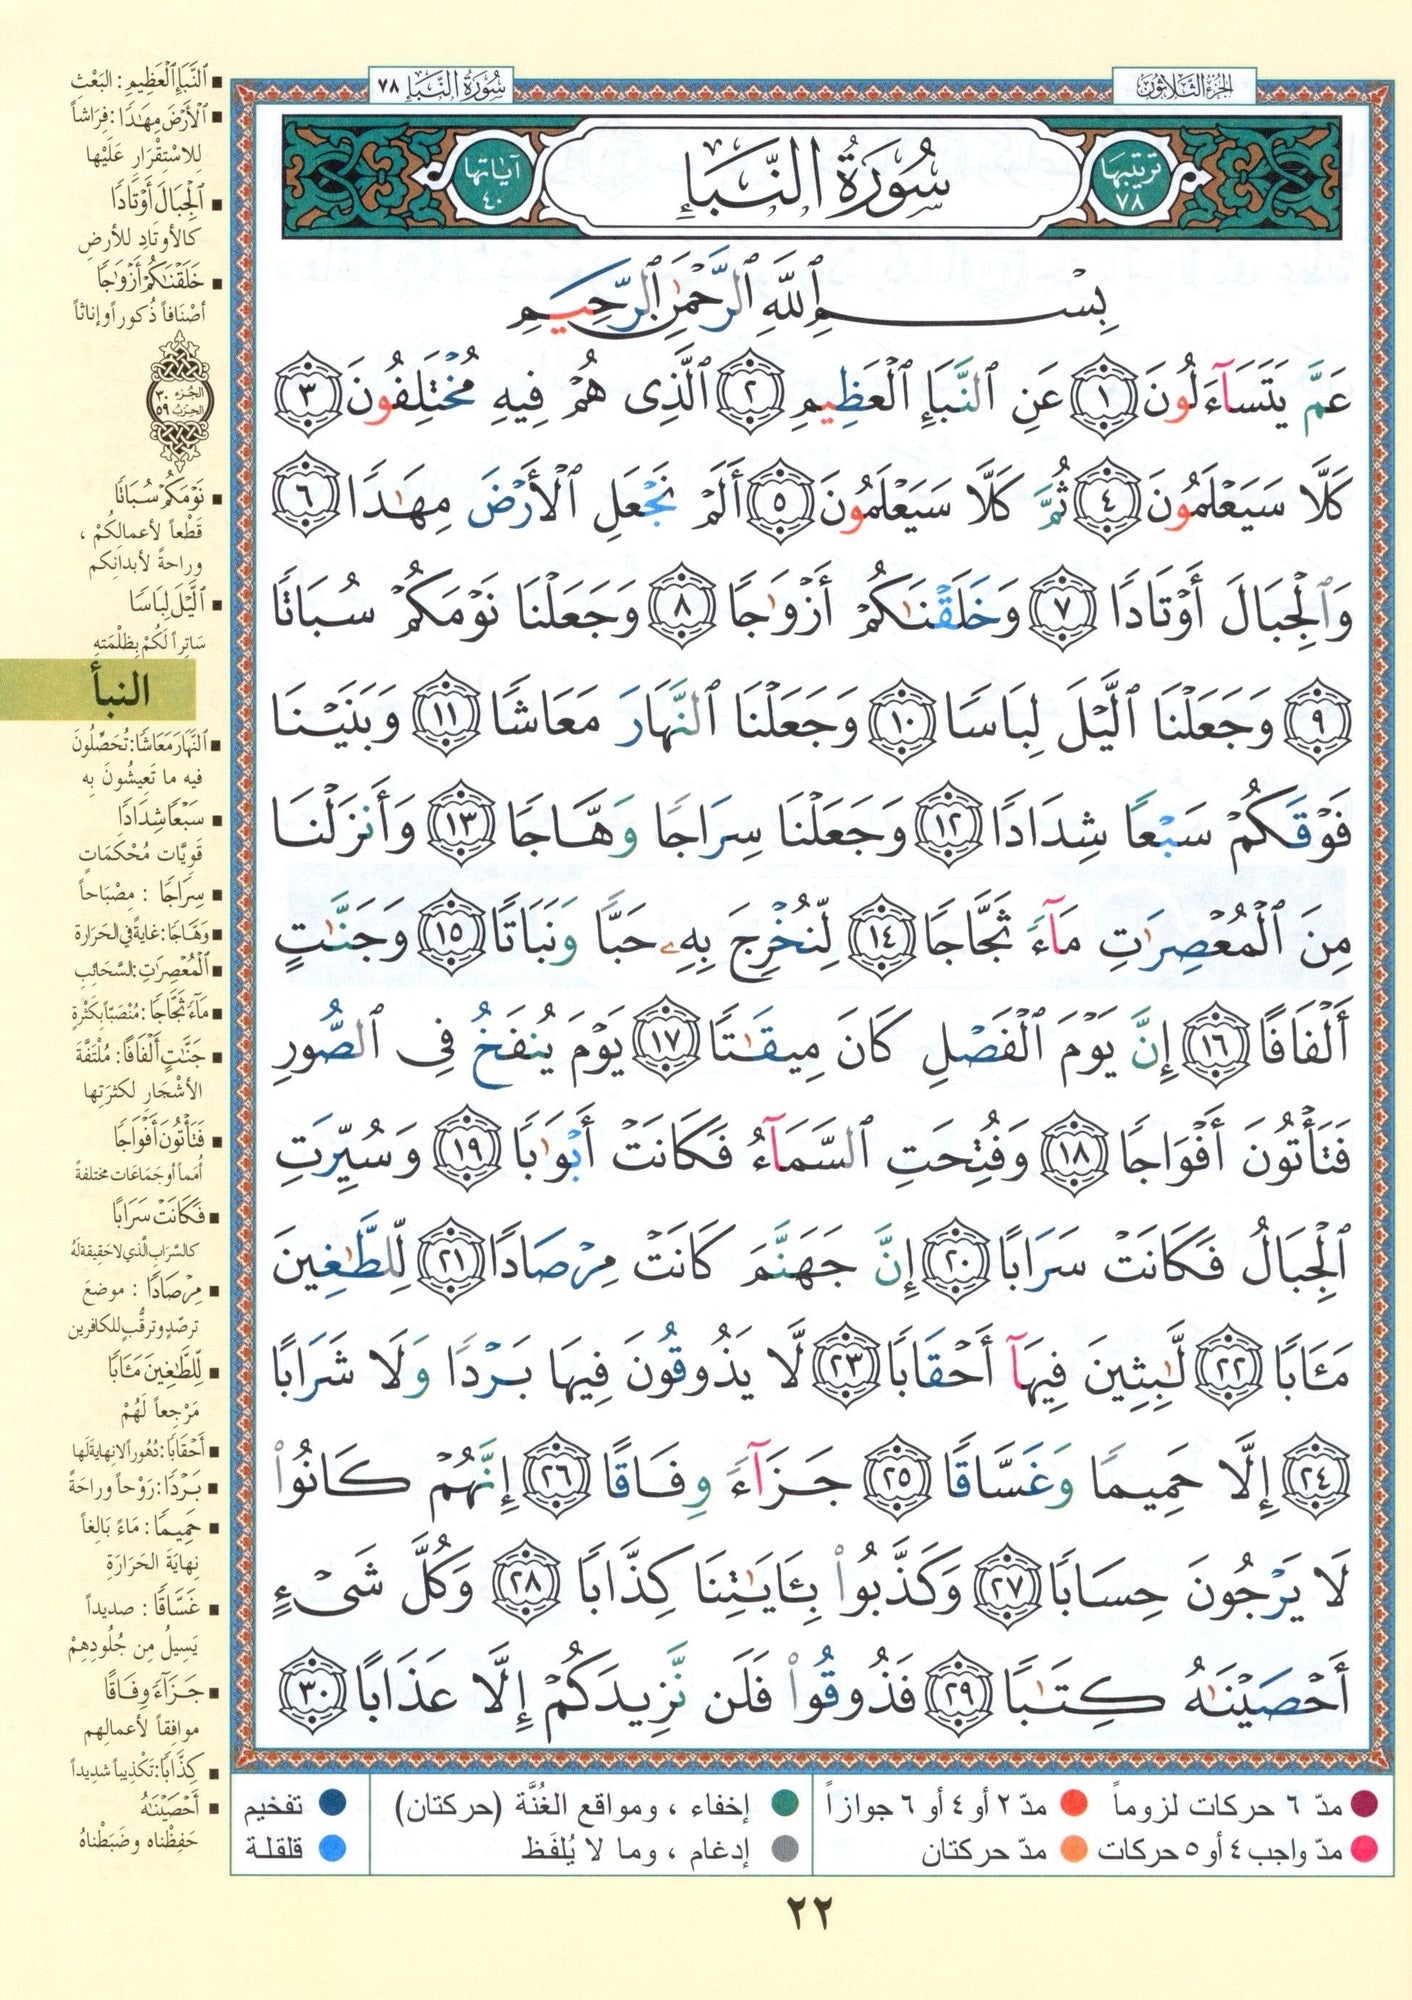 الجزء الثلاثون
سورة النبإ ٧٨
ترتيبها ٧٨
سُورَةُ النَّبَإِ
آياتها ٤٠
بِسْمِ ٱللَّهِ ٱلرَّحْمَٰنِ ٱلرَّحِيمِ
عَمَّ يَتَسَآءَلُونَ ١ عَنِ ٱلنَّبَإِ ٱلْعَظِيمِ ٢ ٱلَّذِى هُمْ فِيهِ مُخْتَلِفُونَ ٣
كَلَّا سَيَعْلَمُونَ ٤ ثُمَّ كَلَّا سَيَعْلَمُونَ ٥ أَلَمْ نَجْعَلِ ٱلْأَرْضَ مِهَٰدًا ٦
وَٱلْجِبَالَ أَوْتَادًا ٧ وَخَلَقْنَٰكُمْ أَزْوَٰجًا ٨ وَجَعَلْنَا نَوْمَكُمْ سُبَاتًا
٩ وَجَعَلْنَا ٱلَّيْلَ لِبَاسًا ١٠ وَجَعَلْنَا ٱلنَّهَارَ مَعَاشًا ١١ وَبَنَيْنَا
فَوْقَكُمْ سَبْعًا شِدَادًا ١٢ وَجَعَلْنَا سِرَاجًا وَهَّاجًا ١٣ وَأَنزَلْنَا
مِنَ ٱلْمُعْصِرَٰتِ مَآءً ثَجَّاجًا ١٤ لِّنُخْرِجَ بِهِۦ حَبًّا وَنَبَاتًا ١٥ وَجَنَّٰتٍ
أَلْفَافًا ١٦ إِنَّ يَوْمَ ٱلْفَصْلِ كَانَ مِيقَٰتًا ١٧ يَوْمَ يُنفَخُ فِى ٱلصُّورِ
فَتَأْتُونَ أَفْوَاجًا ١٨ وَفُتِحَتِ ٱلسَّمَآءُ فَكَانَتْ أَبْوَٰبًا ١٩ وَسُيِّرَتِ
ٱلْجِبَالُ فَكَانَتْ سَرَابًا ٢٠ إِنَّ جَهَنَّمَ كَانَتْ مِرْصَادًا ٢١ لِّلطَّٰغِينَ
مَـَٔابًا ٢٢ لَّٰبِثِينَ فِيهَآ أَحْقَابًا ٢٣ لَّا يَذُوقُونَ فِيهَا بَرْدًا وَلَا شَرَابًا
٢٤ إِلَّا حَمِيمًا وَغَسَّاقًا ٢٥ جَزَآءً وِفَاقًا ٢٦ إِنَّهُمْ كَانُوا۟
لَا يَرْجُونَ حِسَابًا ٢٧ وَكَذَّبُوا۟ بِـَٔايَٰتِنَا كِذَّابًا ٢٨ وَكُلَّ شَىْءٍ
أَحْصَيْنَٰهُ كِتَٰبًا ٢٩ فَذُوقُوا۟ فَلَن نَّزِيدَكُمْ إِلَّا عَذَابًا ٣٠
ٱلنَّبَإِ ٱلْعَظِيمِ : البَعْث
ٱلْأَرْضَ مِهَٰدًا : فِرَاشاً
لِلاسْتِقْرَارِ عَلَيْها
ٱلْجِبَالَ أَوْتَادًا
كالأوتَادِ للأرضِ
خَلَقْنَٰكُمْ أَزْوَٰجًا
أصْنَافاً ذُكوراً وإناثاً
الجُزء ٣٠
الحِزْبُ ٥٩
نَوْمَكُمْ سُبَاتًا
قَطْعاً لأعمالِكُمْ ،
وراحةً لأبدانِكم
ٱلَّيْلَ لِبَاسًا
سَاتِراً لَكُمْ بِظلْمَتِهِ
النبأ
ٱلنَّهَارَ مَعَاشًا : تُحَصِّلُونَ
فيه ما تَعِيشُونَ بِه
سَبْعًا شِدَادًا
قَوِيَّات مُحْكَمَاتٍ
سِرَاجًا : مِصْبَاحاً
وَهَّاجًا : غايةً في الحَرَارة
ٱلْمُعْصِرَٰتِ : السَّحَائِبِ
مَآءً ثَجَّاجًا : مُنْصَبّاً بِكَثْرةٍ
جَنَّٰتٍ أَلْفَافًا : مُلْتَفَّةَ
الأشْجَارِ لكثرَتِها
فَتَأْتُونَ أَفْوَاجًا
أُمَماً أو جَمَاعَات مختلفةً
فَكَانَتْ سَرَابًا
كالسَّرَابِ الَّذي لا حَقِيقة لَهُ
مِرْصَادًا : موضعَ
ترصّدٍ وترقُّبٍ للكافرين
لِّلطَّٰغِينَ مَـَٔابًا
مَرْجِعاً لَهُمْ
أَحْقَابًا : دُهُوراً لا نِهايةَ لَها
بَرْدًا : رَوْحاً وراحَةً
حَمِيمًا : مَاءً بَالِغاً
نِهايَةَ الحَرَارَةِ
غَسَّاقًا : صديداً
يَسِيلُ مِن جُلُودِهِمْ
جَزَآءً وِفَاقًا
موافِقاً لأعمالِهم
كِذَّابًا : تكْذِيباً شَدِيداً
أَحْصَيْنَٰهُ
حَفِظْناه وضَبَطْناهُ
مدّ ٦ حركات لزوماً
مدّ ٢ أو ٤ أو ٦ جوازاً
إخفاء ، ومواقع الغُنَّة (حركتان)
تفخيم
مدّ واجب ٤ أو ٥ حركات
مدّ حركتان
إدغام ، وما لا يُلفَظ
قلقلة
٢٢